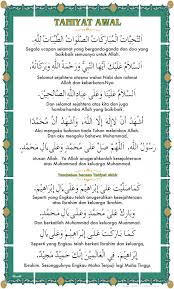 TAHIYAT AWAL
اَلتَّحِيَّاتُ الْمُبَارَكَاتُ الصَّلَوَاتُ الطَّيِّبَاتُ لِلَّهِ.
Segala ucapan selamat yang berganda-ganda dan doa yang
baik-baik semuanya untuk Allah.
اَلسَّلَامُ عَلَيْكَ أَيُّهَا النَّبِيُّ وَرَحْمَةُ اللَّهِ وَبَرَكَاتُهُ
Selamat sejahtera atasmu wahai Nabi dan rahmat
Allah dan
السَّلَامُ عَلَيْنَا وَعَلَى عِبَادِ اللَّهِ الصَّالِحِيْنَ.
Dan selamat sejahtera atas kita dan juga
hamba-hamba Allah yang baik-baik.
أَشْهَدُ أَنْ لَا إِلَهَ إِلَّا اللَّهُ، وَأَشْهَدُ أَنَّ مُحَمَّدًا
Aku mengaku bahawa tiada Tuhan melainkan Allah.
Dan aku mengaku bahawa Muhammad.
رَسُوْلُ اللَّهِ. اَللَّهُمَّ صَلِّ عَلَى مُحَمَّدٍ وَعَلَى آلِ مُحَمَّدٍ
utusan Allah. Ya Allah anugerahkanlah kesejahteraan
atas Muhammad dan keluarga Muhammad.
Tambahan bacaan Tahiyat akhir
كَمَا صَلَّيْتَ عَلَى إِبْرَاهِيْمَ وَعَلَى آلِ إِبْرَاهِيْمَ.
Seperti yang Engkau telah anugerahkan kesejahteraan
atas Ibrahim dan keluarga Ibrahim.
وَبَارِكْ عَلَى مُحَمَّدٍ وَعَلَى آلِ مُحَمَّدٍ
dan keluarga Muhammad.
كَمَا بَارَكْتَ عَلَى إِبْرَاهِيْمَ وَعَلَى آلِ إِبْرَاهِيْمَ
Seperti yang Engkau telah berkati Ibrahim dan keluarga
Ibrahim. Sesungguhnya Engkau Maha Terpuji lagi Maha Tinggi.